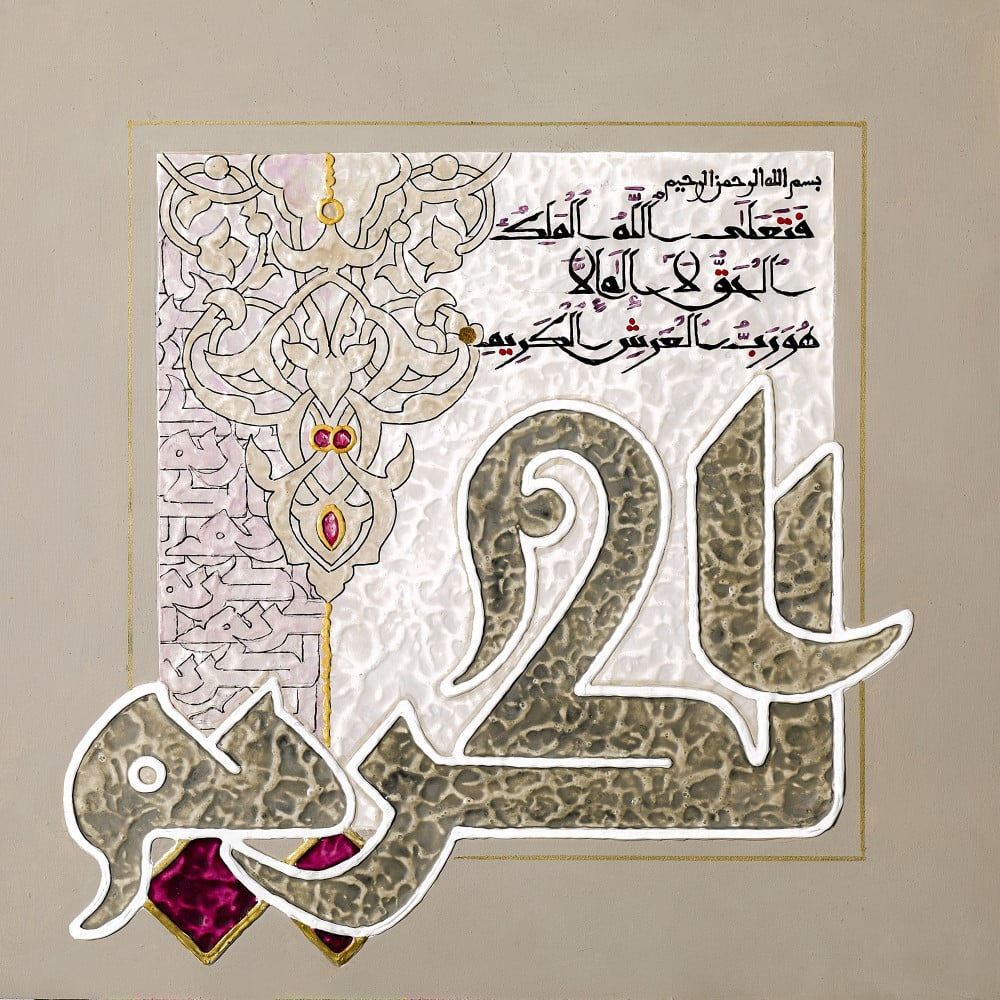 بسم الله الرحمن الرحيم
فَتَعَلَى اللَّهُ الْمَلِكُ
الْحَقُّ لَا إِلَهَ إِلَّا
هُوَ رَبُّ الْعَرْشِ الْكَرِيمِ
الكريم